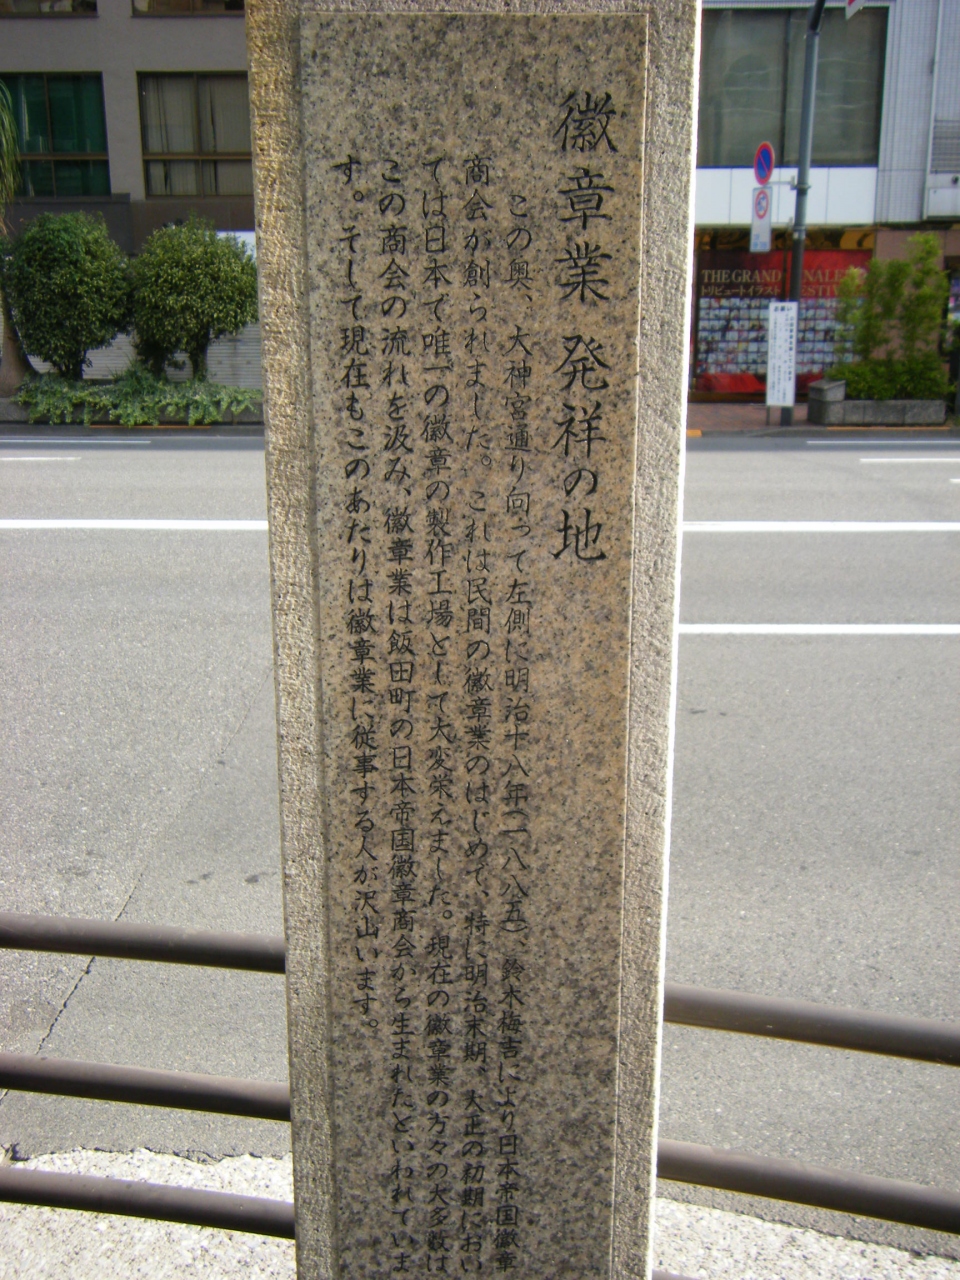 徽章業発祥の地
この奥、大神宮通り向って左側に明治十八年(一八八五)、鈴木梅吉により日本帝国徽章
商会が創られました。これは民間の徽章業のはじめで、特に明治末期、大正の初期におい
ては日本で唯一の徽章の製作工場として大変栄えました。現在の徽章業の方々の大多数は
この商会の流れを汲み、徽章業は飯田町の日本帝国徽章商会から生まれたといわれていま
す。そして現在もこのあたりは徽章業に従事する人が沢山います。
THE GRAND
トリビュートイラスト